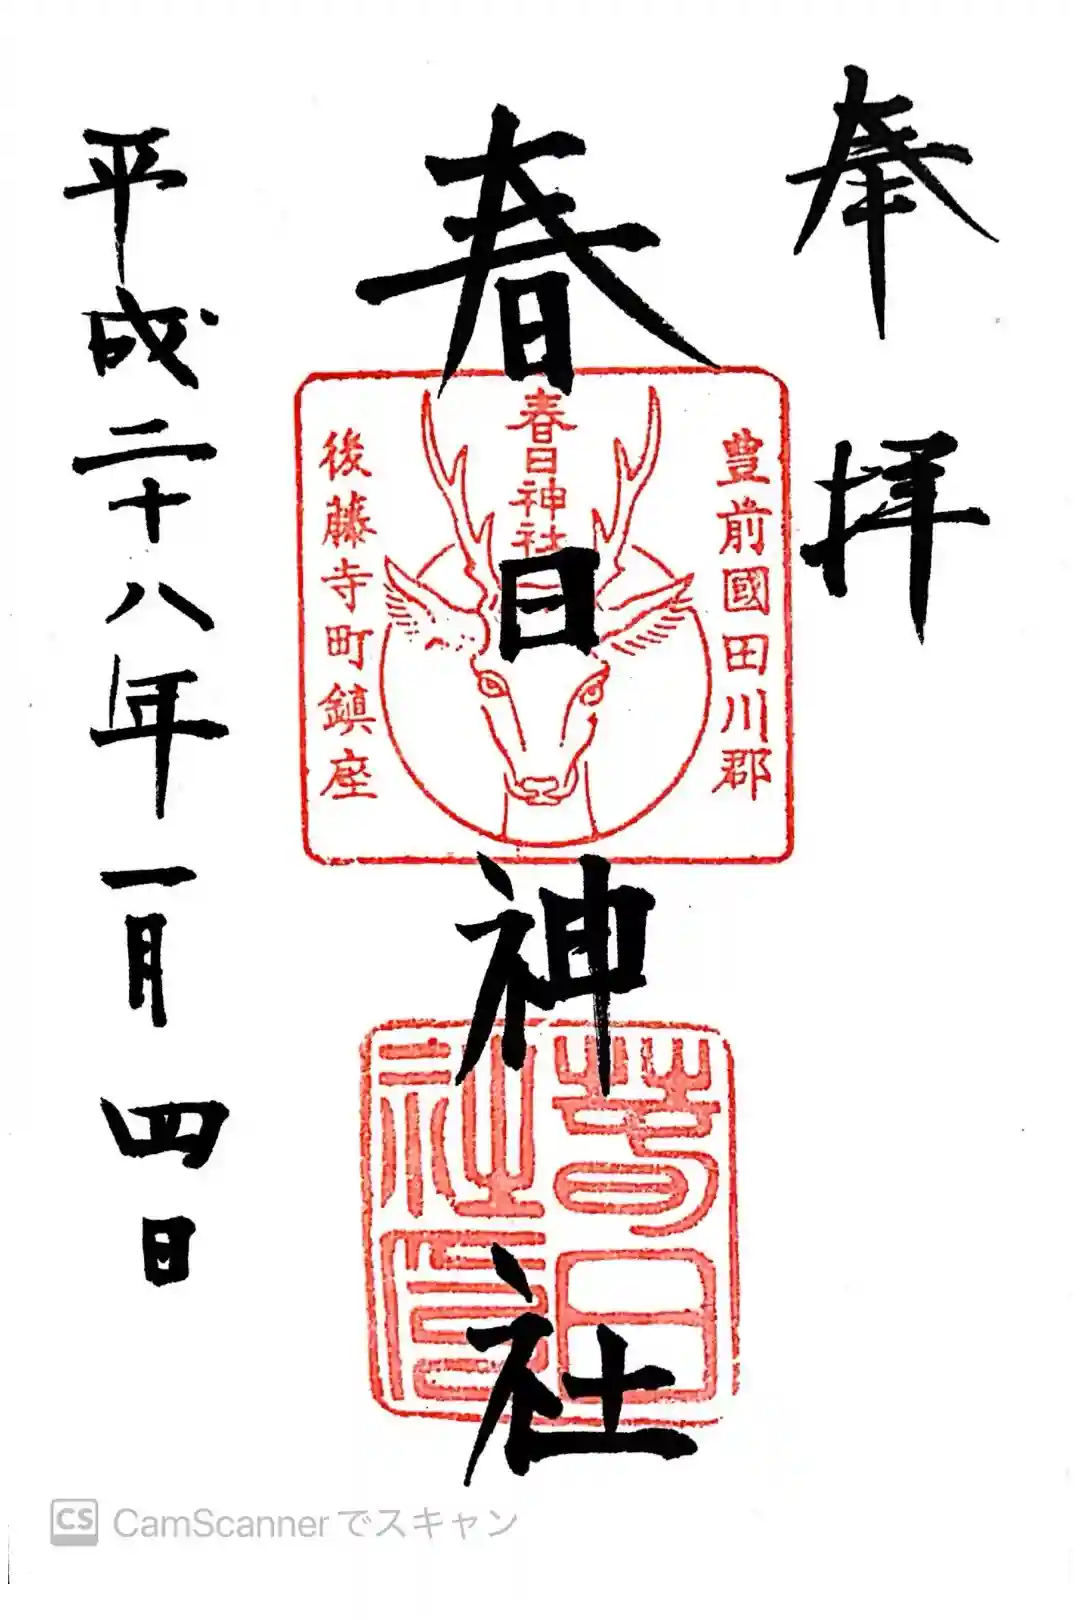 奉拝
豊前國田川郡
春日神社
後藤寺町鎮座
春日神社
春日
社印
平成二十八年一月四日
CS CamScannerでスキャン